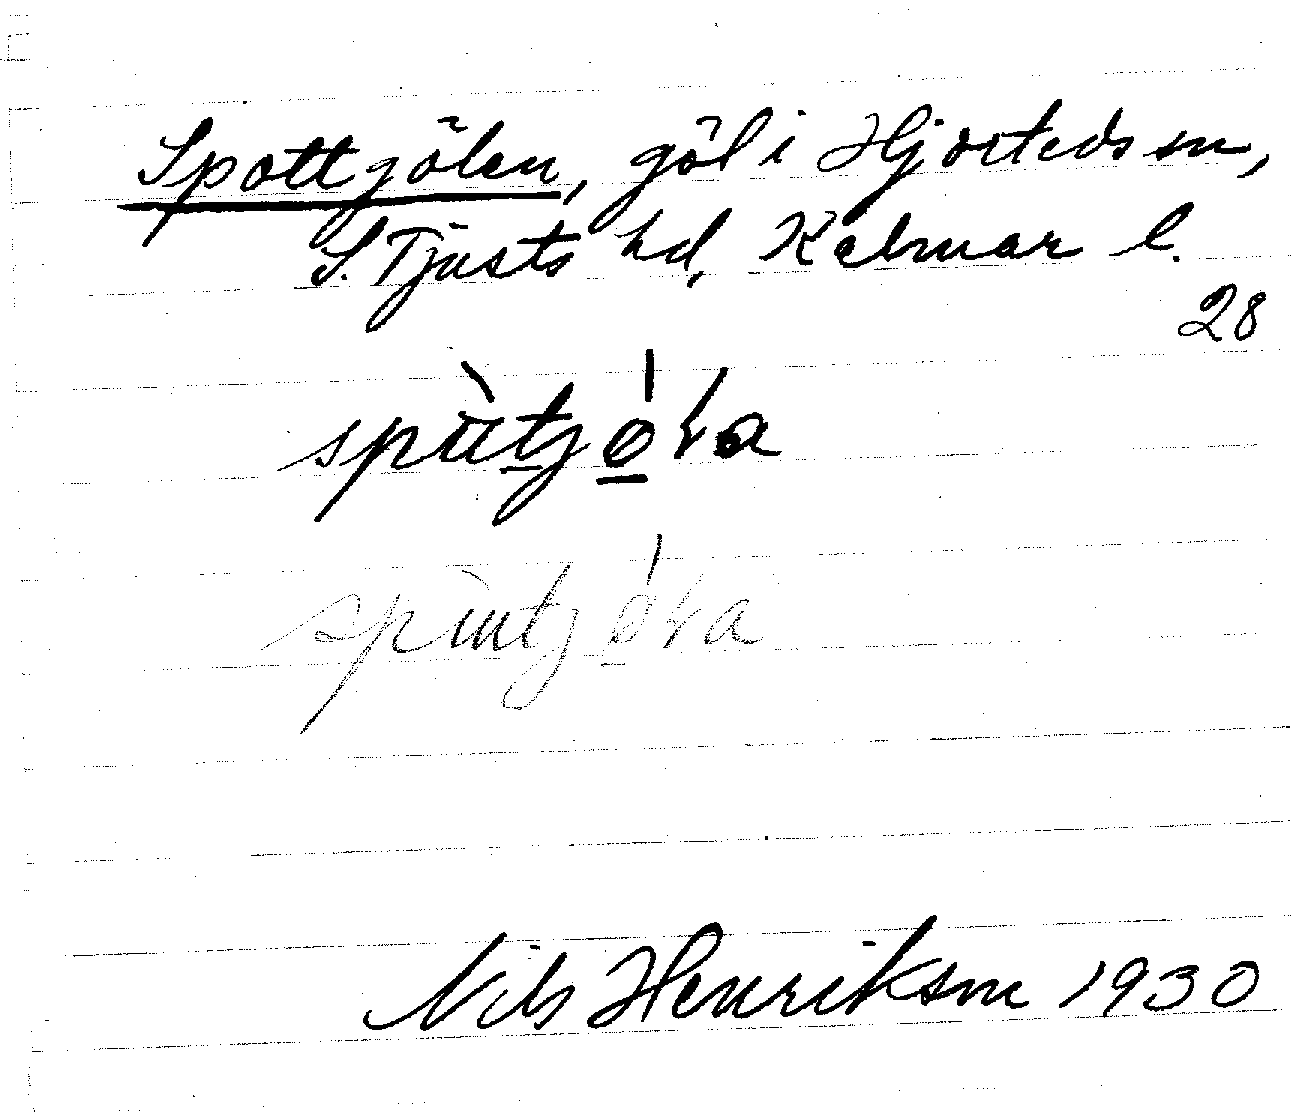 Spottgölen, göl i Hjorteds sn,
S. Tjusts hd, Kalmar l.
28
Nils Henriksson 1930